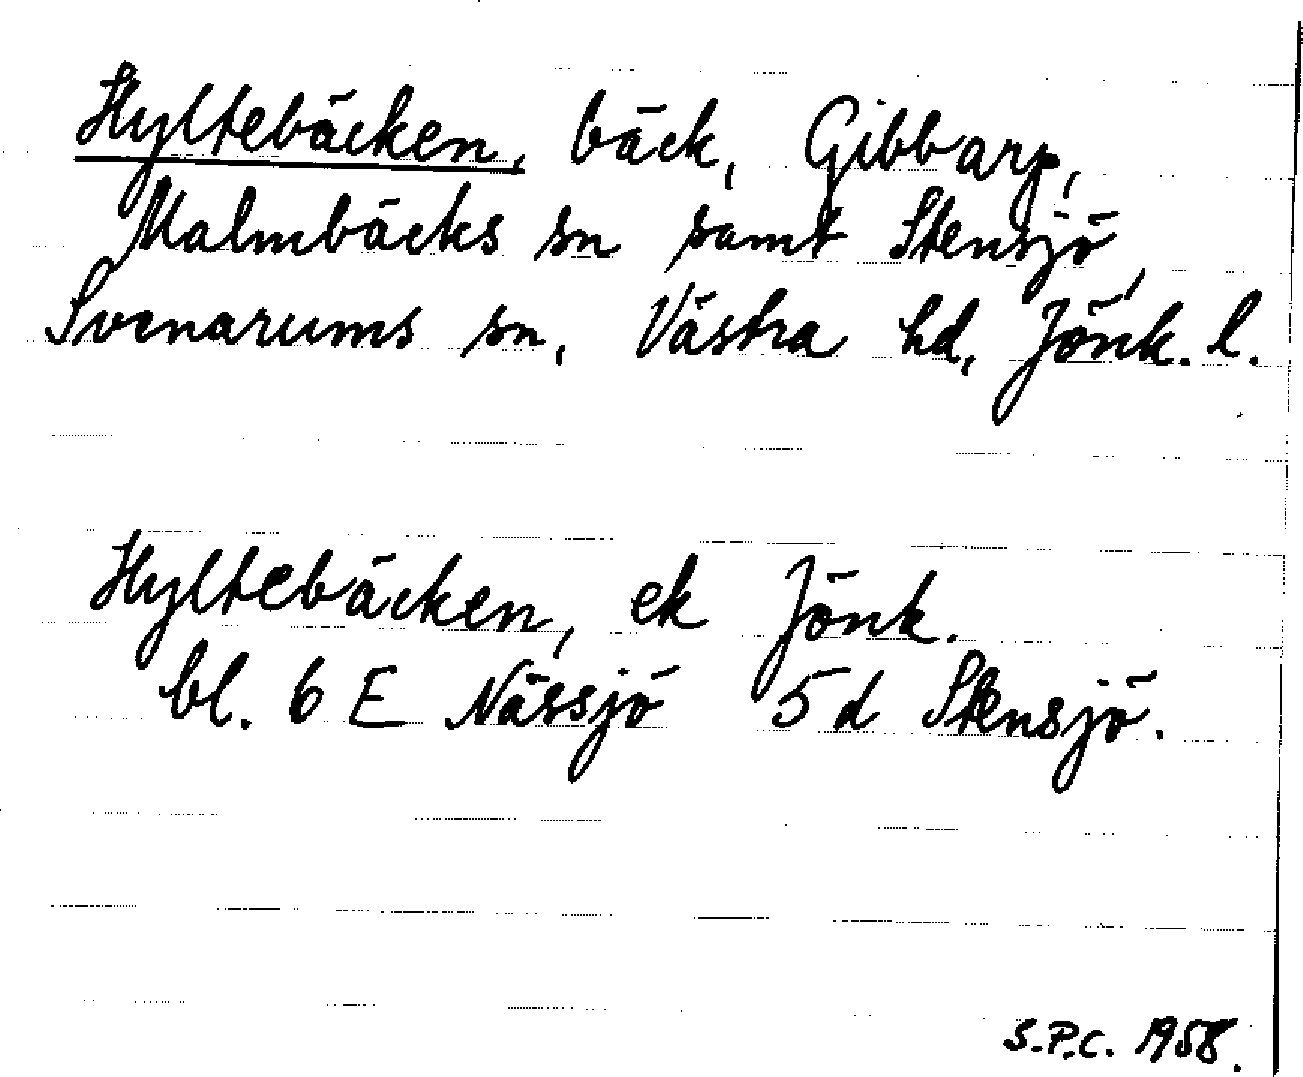 Hyltebäcken, bäck, Gibbarp,
Malmbäcks sn samt Stensjö,
Svenarums sn, Västra hd, Jönk. l.
Hyltebäcken, ek Jönk.
bl. 6 E Nässjö 5 d Stensjö.
S.P.C. 1958.